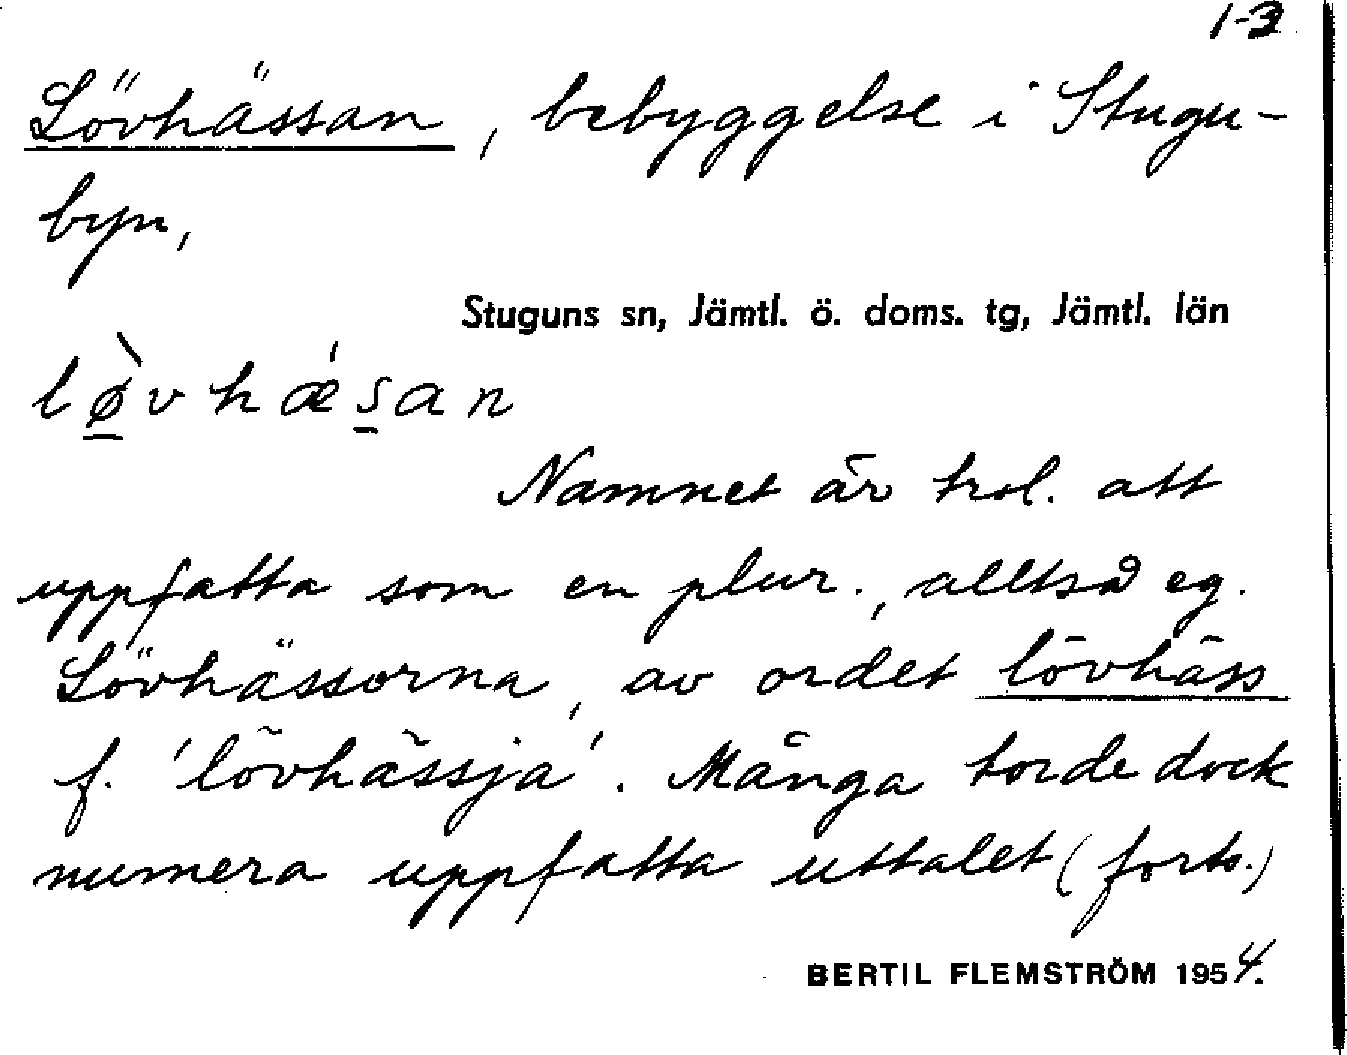 1-3
Lövhässan, bebyggelse i Stugu-
byn,
Stuguns sn, Jämtl. ö. doms. tg, Jämtl. län
lø̠̀vhǽs̠an
Namnet är trol. att
uppfatta som en plur., alltså eg.
Lövhässorna, av ordet lövhäss
f. 'lövhässja'. Många torde dock
numera uppfatta uttalet (forts.)
BERTIL FLEMSTRÖM 1954.